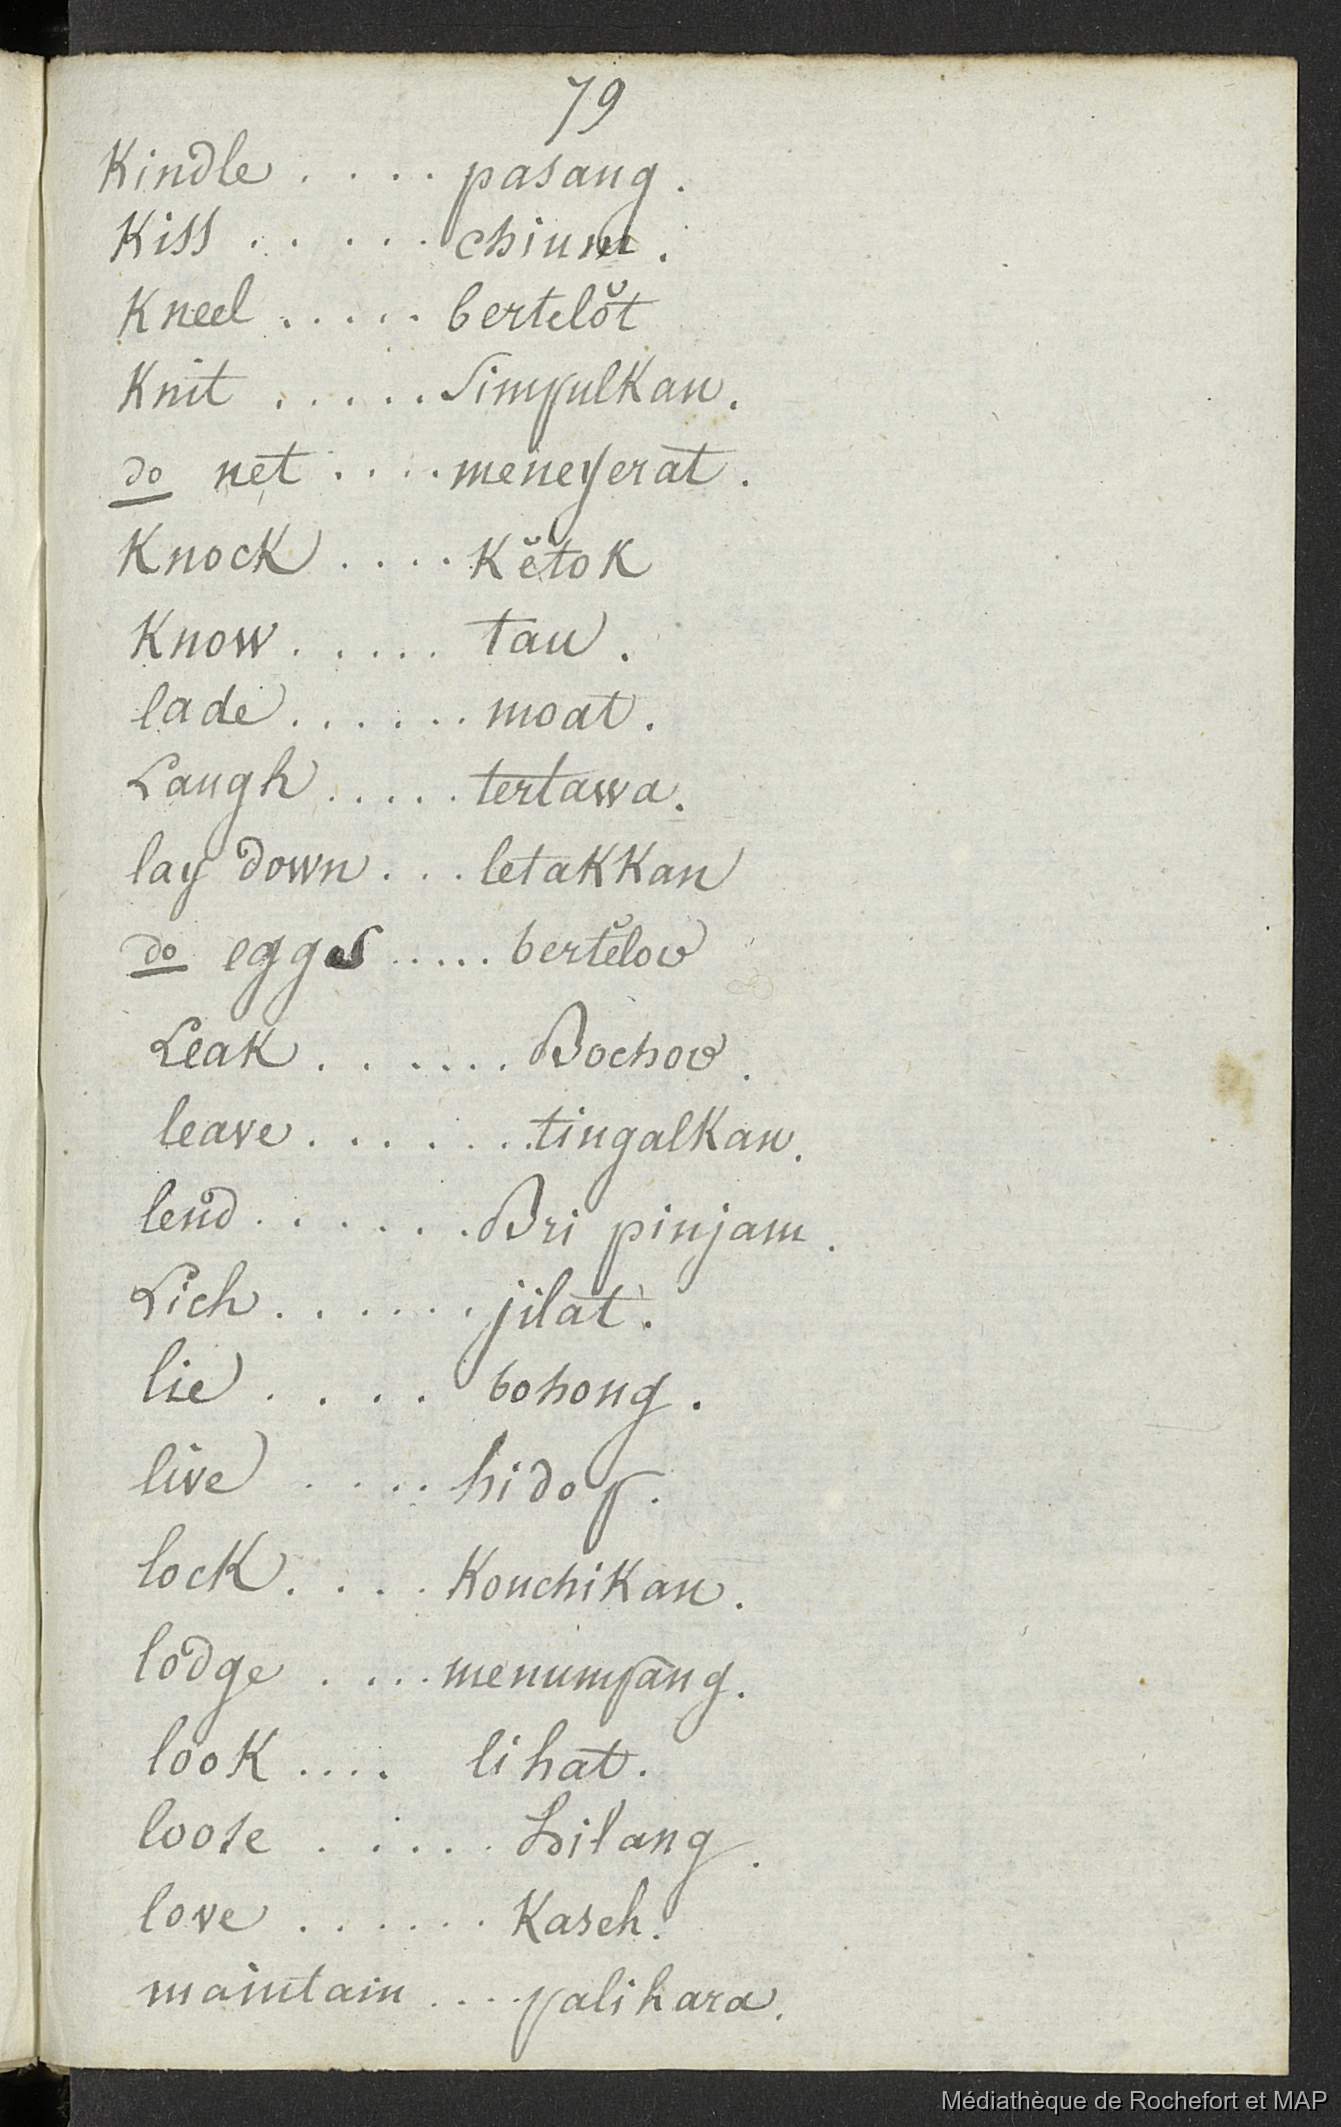 79
Kindle . . . . pasang.
Kiss . . . . . chium.
Kneel . . . . . bertelŏt
Knit . . . . . SimpulKan.
do net . . . . meneyerat.
KnocK . . . . KĕtoK
Know . . . . . tau.
lade . . . . . . moat.
Laugh . . . . . tertawa.
lay down . . . letaKKan
do eggs . . . . . bertĕlov
LeaK . . . . . . Bochov.
leave . . . . . . tingalKan.
lend . . . . . . Bri pinjam.
Lich . . . . . . jilat.
lie . . . . bohong.
live . . . . hidop.
locK . . . . KonchiKan.
lodge . . . . menumpang.
looK . . . . lihat.
loose . . . . . hilang.
love . . . . . . Kaseh.
maintain . . . . palihara.
Médiathèque de Rochefort et MAP